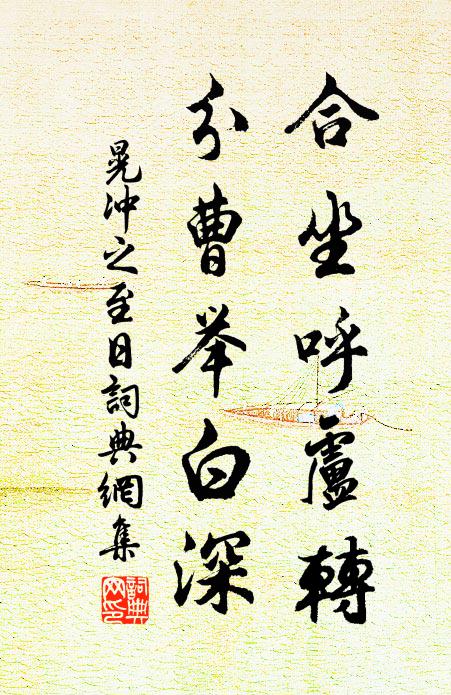 合坐呼盧轉
分曹举白深
晁冲之至日詞典網集
詞典网印